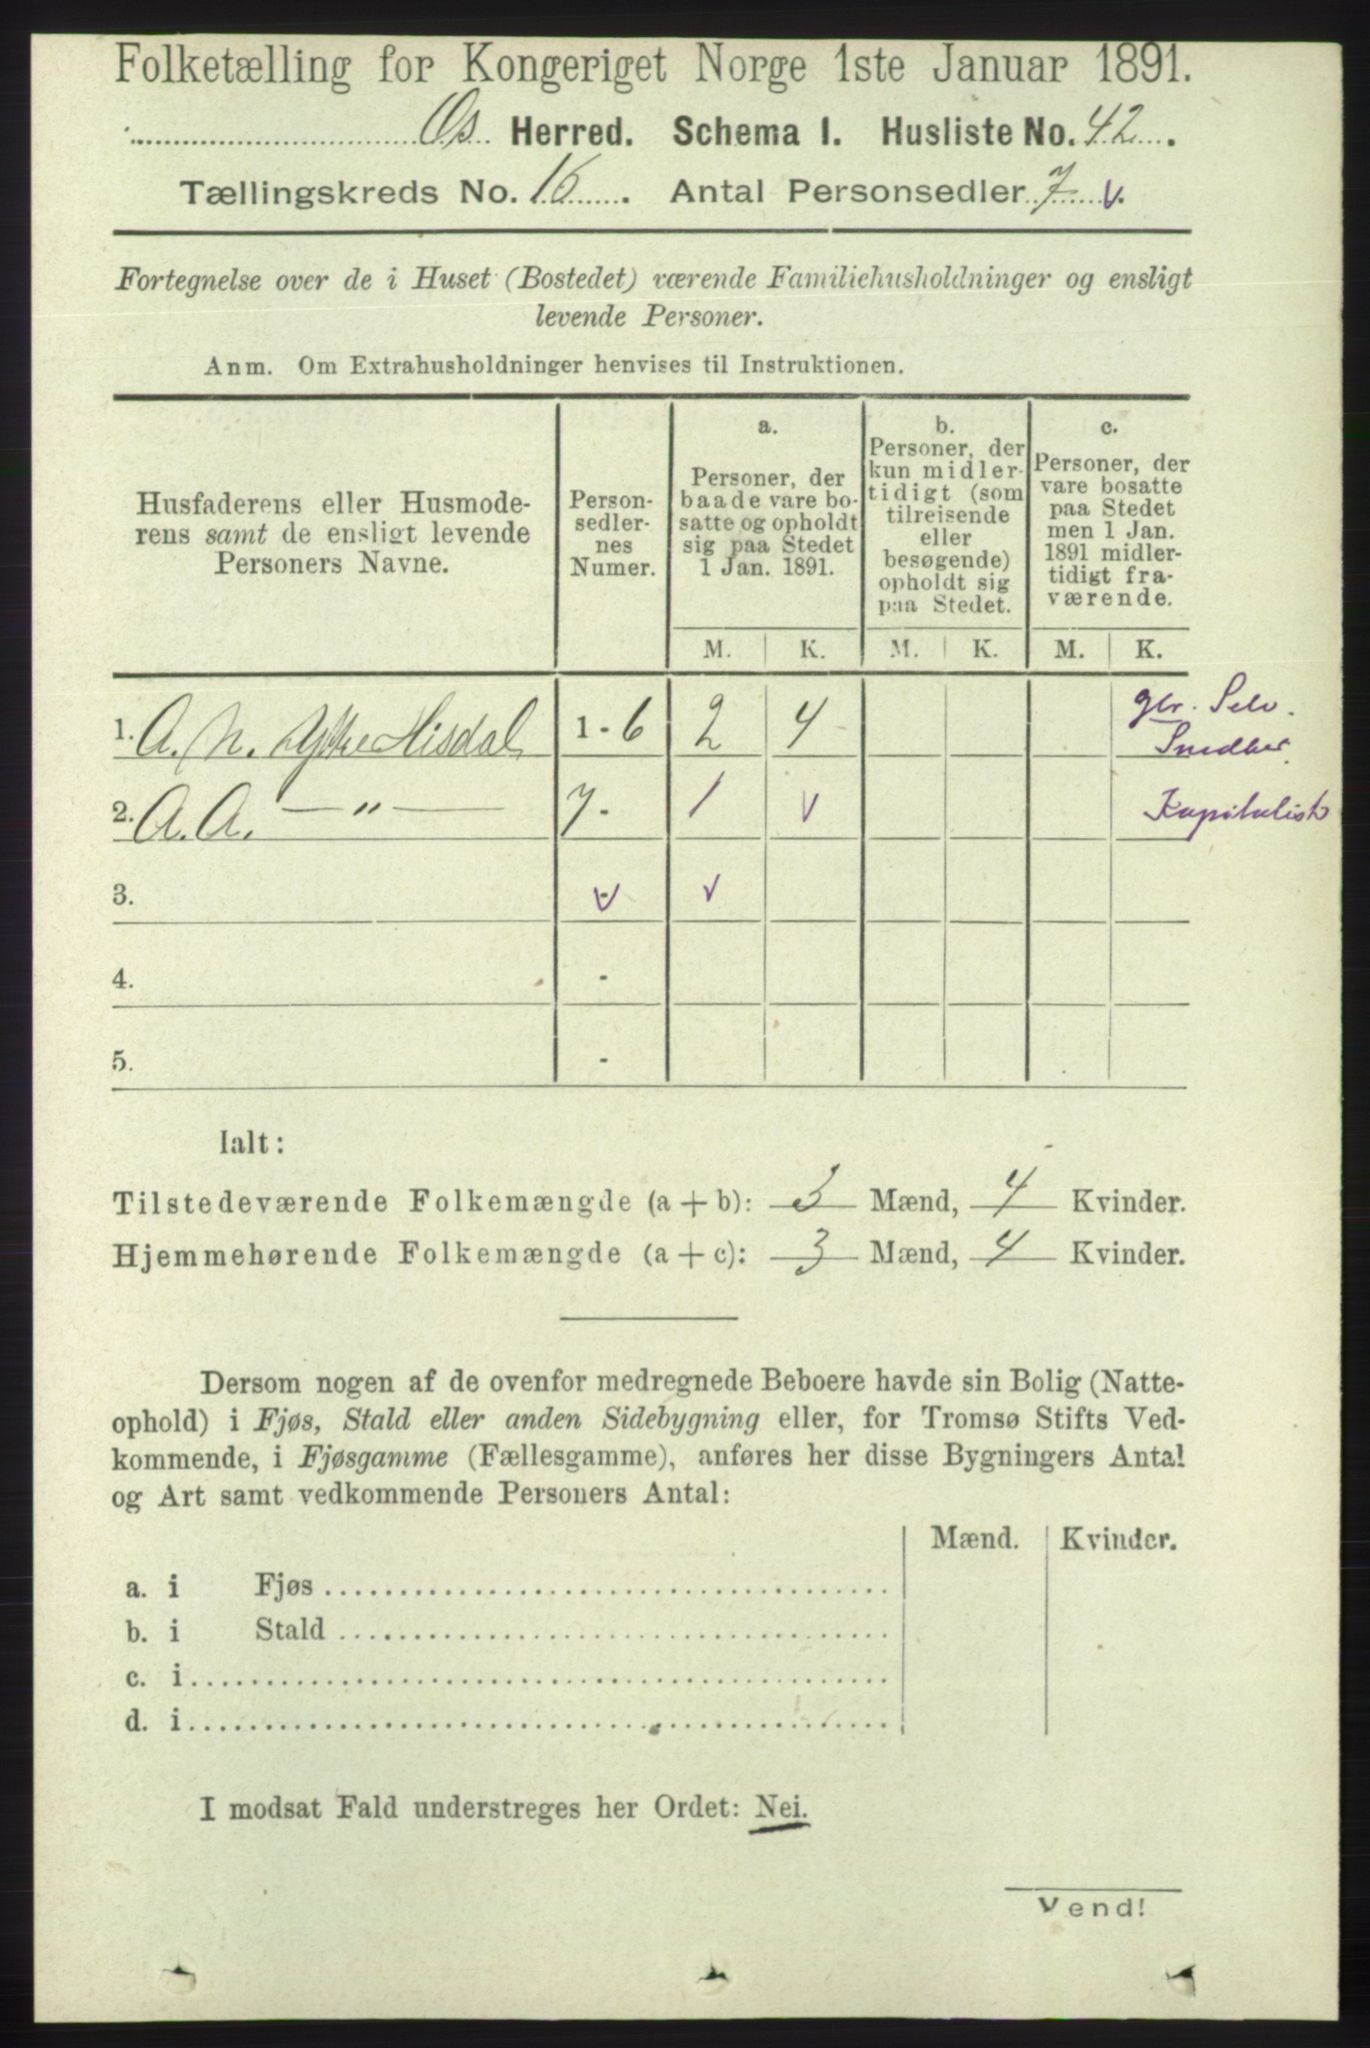 Folketælling for Kongeriget Norge 1ste Januar 1891.
Os Herred. Schema I. Husliste No. 42.
Tællingskreds No. 16. Antal Personsedler 7 v.
Fortegnelse over de i Huset (Bostedet) værende Familiehusholdninger og ensligt
levende Personer.
Anm. Om Extrahusholdninger henvises til Instruktionen.
Husfaderens eller Husmode-
rens samt de ensligt levende
Personers Navne.
Person-
sedler-
nes
Numer.
a.
Personer, der
baade vare bo-
satte og opholdt
sig paa Stedet
1 Jan. 1891.
b.
Personer, der
kun midler-
tidigt (som
tilreisende
eller
besøgende)
opholdt sig
paa Stedet.
c.
Personer, der
vare bosatte
paa Stedet
men 1 Jan.
1891 midler-
tidigt fra-
værende.
M. K. M. K. M. K.
1. A. N. Yttre Hisdal 1 - 6 2 4 gbr. Selv.
Snedker
2. A. A. — " — 7 - 1 v Kapitalist
3. v v
4. -
5. -
Ialt:
Tilstedeværende Folkemængde (a + b): 3 Mænd, 4 Kvinder.
Hjemmehørende Folkemængde (a + c): 3 Mænd, 4 Kvinder.
Dersom nogen af de ovenfor medregnede Beboere havde sin Bolig (Natte-
ophold) i Fjøs, Stald eller anden Sidebygning eller, for Tromsø Stifts Ved-
kommende, i Fjøsgamme (Fællesgamme), anføres her disse Bygningers Antal
og Art samt vedkommende Personers Antal:
Mænd. Kvinder.
a. i Fjøs
b. i Stald
c. i
d. i
I modsat Fald understreges her Ordet: Nei.
Vend!